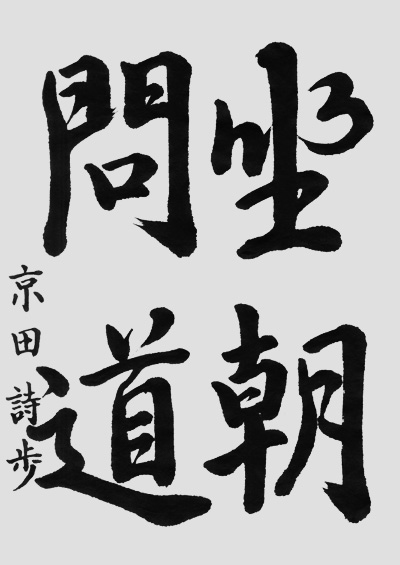 坐朝
問道
京田詩歩